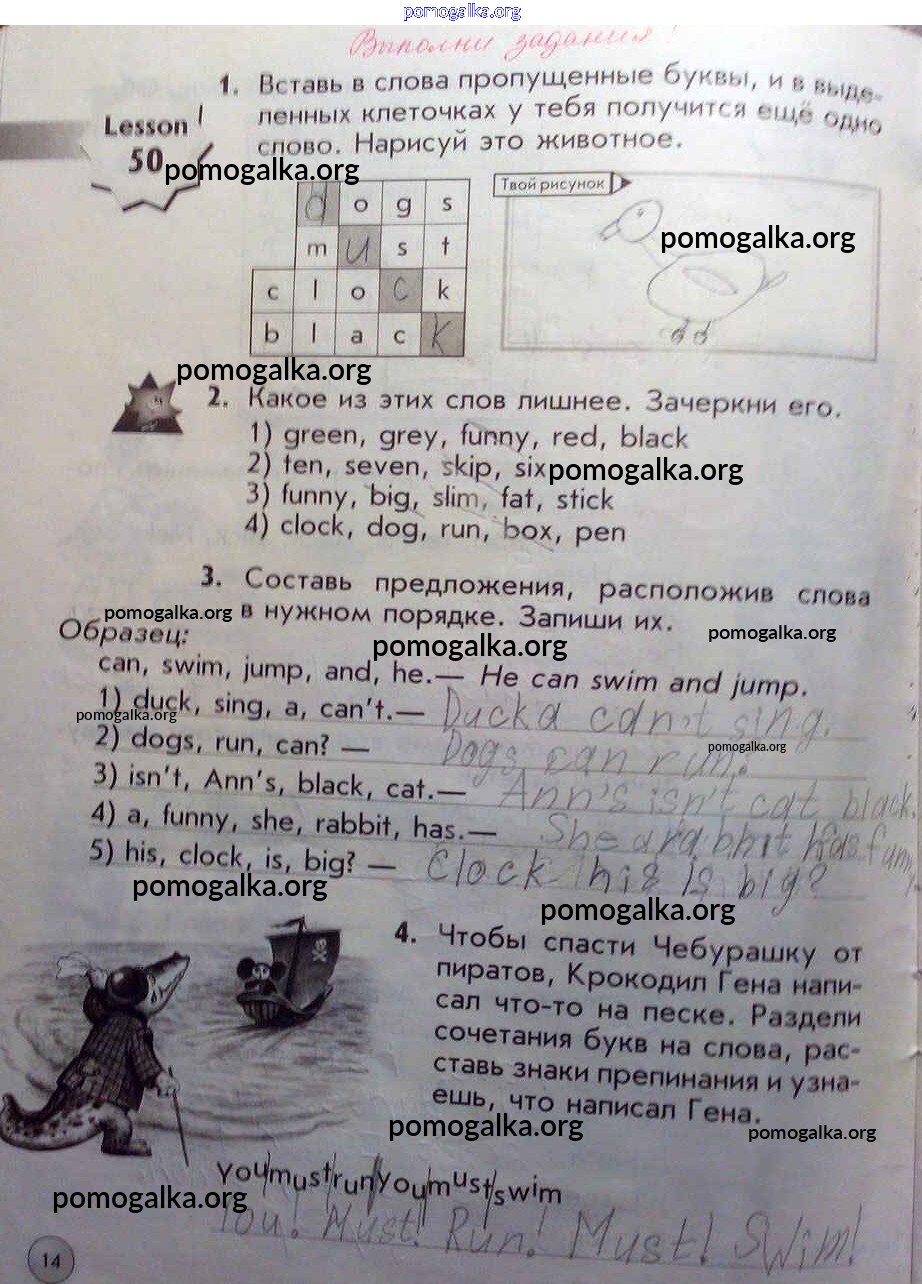 pomogalka.org
Выполни задания!
1. Вставь в слова пропущенные буквы, и в выде-
ленных клеточках у тебя получится ещё одно
слово. Нарисуй это животное.
Lesson
50
pomogalka.org
d o g s
m u s t
c l o c k
b l a c k
Твой рисунок
pomogalka.org
pomogalka.org
2. Какое из этих слов лишнее. Зачеркни его.
1) green, grey, funny, red, black
2) ten, seven, skip, six
pomogalka.org
3) funny, big, slim, fat, stick
4) clock, dog, run, box, pen
3. Составь предложения, расположив слова
в нужном порядке. Запиши их.
pomogalka.org
pomogalka.org
Образец:
pomogalka.org
can, swim, jump, and, he.— He can swim and jump.
1) duck, sing, a, can't.— Duck a can't sing.
pomogalka.org
2) dogs, run, can? — Dogs can run?
pomogalka.org
3) isn't, Ann's, black, cat.— Ann's isn't cat black.
4) a, funny, she, rabbit, has.— She a rabbit has funny
5) his, clock, is, big? — Clock his is big?
pomogalka.org
pomogalka.org
4. Чтобы спасти Чебурашку от
пиратов, Крокодил Гена напи-
сал что-то на песке. Раздели
сочетания букв на слова, рас-
ставь знаки препинания и узна-
ешь, что написал Гена.
pomogalka.org
pomogalka.org
youmustrunyoumustswim
pomogalka.org
You! Must! Run! Must! Swim!
14